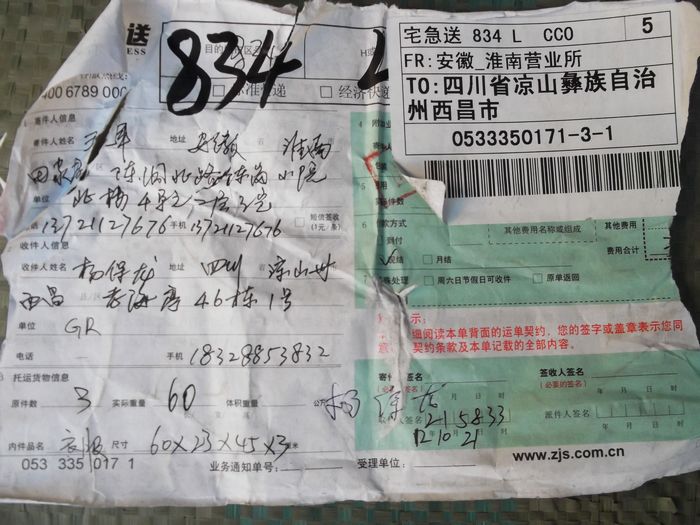 送
ESS
400 6789 000
834 L
标准快递
经济快递
宅急送 834 L CCO 5
FR:安徽_淮南营业所
TO:四川省凉山彝族自治
州西昌市
0533350171-3-1
寄件人信息
寄件人姓名 地址 安徽 淮南
单位 北楼4单元二层3号
13721127676 手机 13721127676 短信签收
(1元/条)
收件人信息
收件人姓名 杨保龙 地址 四川 凉山州
西昌 老海亭46栋1号
单位 GR
电话 手机 18328853832
托运货物信息
原件数 3 实际重量 60 体积重量 公斤
内件品名 衣服 尺寸 60×23×45×3 厘米
053 335 017 1 业务通知单号: 受理单位:
费用
付款方式
到付
现结 月结
其他费用名称或组成
其他费用
费用合计
特殊处理 周六日节假日可收件 原单返回
示:
请仔细阅读本单背面的运单契约,您的签字或盖章表示您同
意契约条款及本单记载的全部内容。
签收人签名
(必要的签名)
年 月 日 时
派件人签名
年 月 日 时
杨保龙
1215833
12 10 21
www.zjs.com.cn